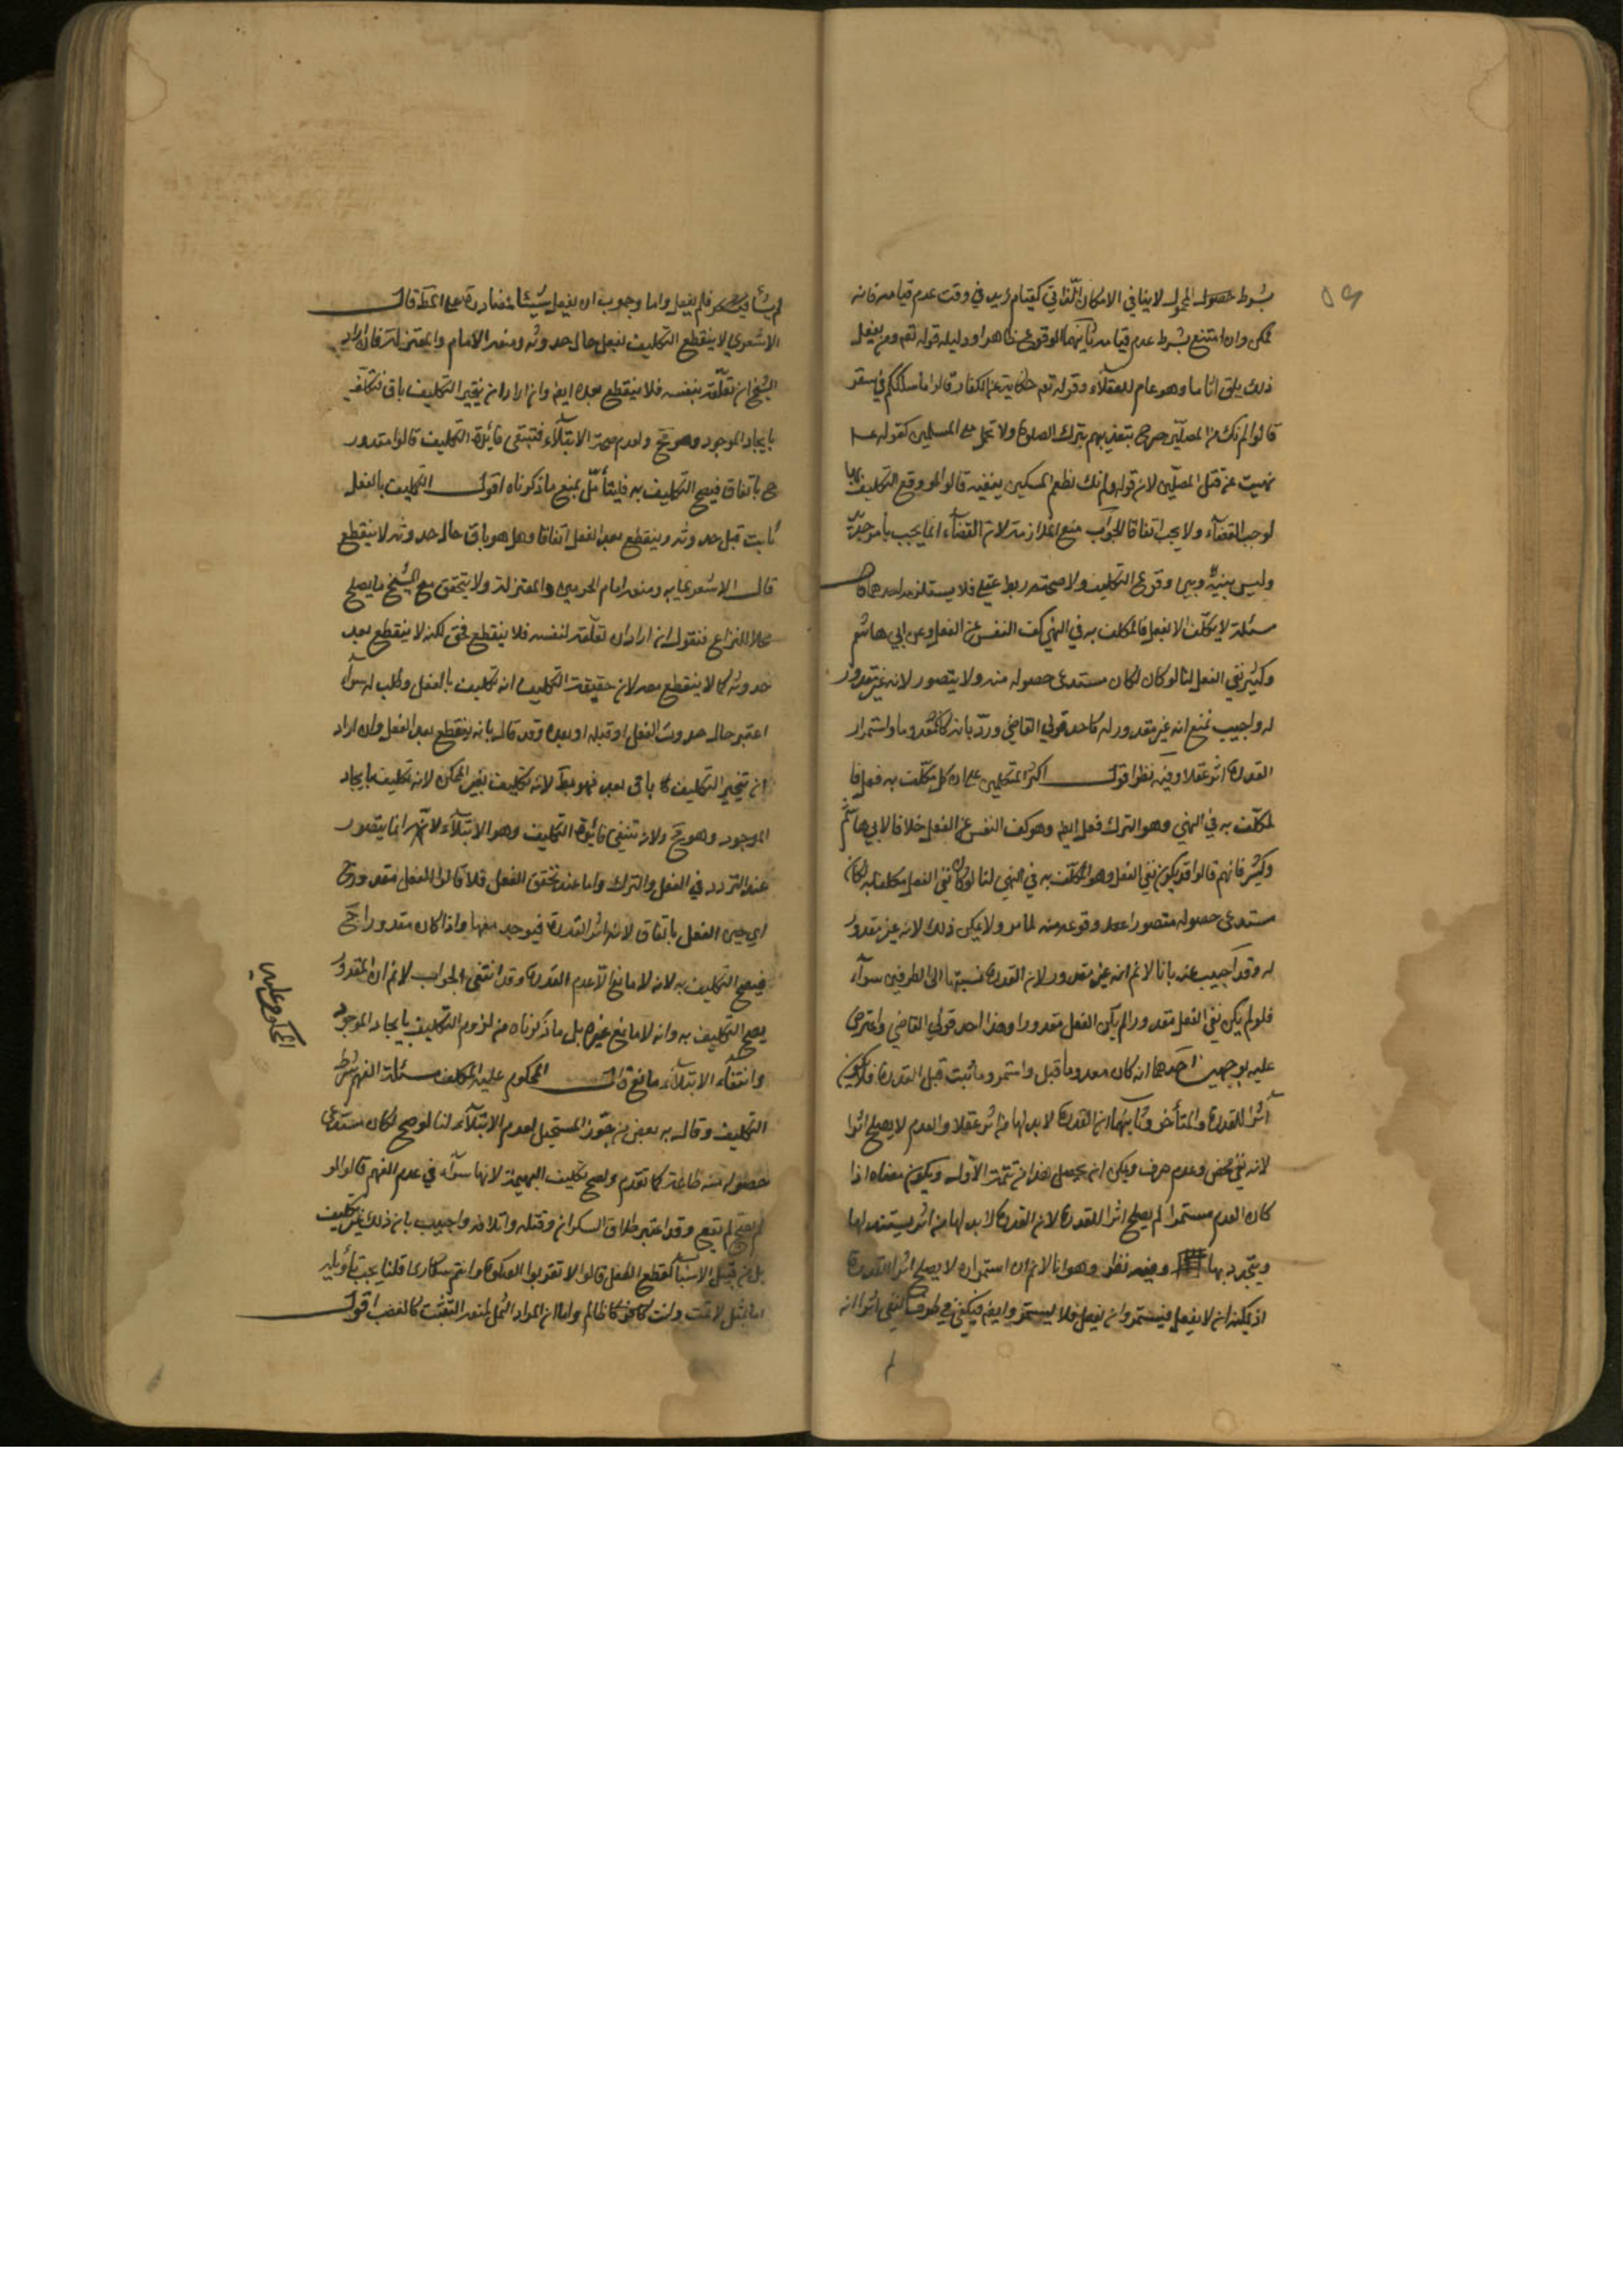 بشرط حصول المحمول لا ينافي الامكان الذاتي كقيام زيد في وقت عدم قيامه فانه
ممكن وان امتنع بشرط عدم قيامه ثانيهما الوقوع ظاهرا ودليله قوله تعم ومن يفعل
ذلك يلق اثاما وهو عام للعقلاء وقوله تعم حكاية عن الكفار قالوا ما سلككم في سقر
قالوا لم نك من المصلين صرح بتعذيبهم بترك الصلوة ولا يحمل على المسلمين كقوله عـ
نهيت عن قتل المصلين لان قوله ولم نك نطعم المسكين ينفيه قالوا لو وقع التكليف بها
لوجب القضاء ولا يجب اتفاقا الجواب منع الملازمة لان القضاء انما يجب بامر جديد
وليس بينه وبين وقوع التكليف ولا صحته ربط عقلي فلا يستلزمه احدهما قال
مسئلة لا يكلف الا بفعل فالمكلف به في النهي كف النفس عن الفعل وعن ابي هاشم
وكثير نفي الفعل لنا لو كان لكان مستدعى حصوله منه ولا يتصور لانه غير مقدور
له واجيب بمنع انه غير مقدور له كاحد قولي القاضي ورد بانه كان معدوما واستمر
القدرة اثر عقلا وفيه نظر اقول اكثر المتكلمين على ان كل مكلف به فعل فا
لمكلف به في النهي وهو الترك فعل ايضا وهو كف النفس عن الفعل خلافا لابي هاشم
وكثير فانهم قالوا قد يكون نفي الفعل وهو المكلف به في النهي لنا لو كان نفي الفعل مكلفا به لكان
مستدعى حصوله متصورا وقوعه منه لما مر ولا يمكن ذلك لانه غير مقدور
له وقد اجيب عنه بانا لا نم انه غير مقدور لان القدرة نسبتها الى الطرفين سواء
فلو لم يكن نفي الفعل مقدورا لم يكن الفعل مقدورا وهذا احد قولي القاضي واعترض
عليه بوجهين احدهما انه كان معدوما قبل واستمر وما ثبت قبل القدرة فلا يكون
اثرا للقدرة المتأخر وثانيهما ان القدرة لا بد لها من اثر عقلا والعدم لا يصلح اثرا
لانه نفي محض وعدم صرف ويمكن ان يجعل هذا من تتمة الاول ويكون معناه اذا
كان العدم مستمرا لم يصلح اثرا للقدرة لان القدرة لا بد لها من اثر يستند لها
ويتجدد بها وفيه نظر وهو انا لا نم ان استمراره لا يصلح اثر القدرة
اذ يمكنه ان لا يفعل فيستمر وان يفعل فلا يستمر وايضا فيكفي في طرف النفي اثرا انه
لم يشأ فلم يفعل واما وجوب ان يفعل شيئا فمصادرة على المط قال
الاشعري لا ينقطع التكليف بفعل حال حدوثه ومنعه الامام والمعتزلة فان اراد
الشيخ ان تعلقه بنفسه فلا ينقطع بعده ايضا وان اراد ان تنجيز التكليف باق فتكليف
بايجاد الموجود وهو مح ولعدم صحة الابتلاء فتنتفي فائدة التكليف قالوا مقدور
ح باتفاق فيصح التكليف به قلنا بل يمنع ما ذكرناه اقول التكليف بالفعل
ثابت قبل حدوثه وينقطع بعد الفعل اتفاقا وهل هو باق حال حدوثه لا ينقطع
قال الاشعري به ومنعه امام الحرمين والمعتزلة ولا يتحقق مع الشيخ ما يصلح
محلا للنزاع فنقول ان اراد ان تعلقه لنفسه فلا ينقطع فحق لكنه لا ينقطع بعد
حدوثه كما لا ينقطع معه لان حقيقة التكليف انه تكليف بالفعل وطلب له سواء
اعتبر حال حدوث الفعل او قبله او بعده وقد قال بانه ينقطع بعد الفعل وان اراد
ان تنجيز التكليف باق بعد فهو بط لانه تكليف بغير الممكن لانه تكليف بايجاد
الموجود وهو مح ولانه تنتفي فائدة التكليف وهو الابتلاء لانه انما يتصور
عند التردد في الفعل والترك واما عند تحقق الفعل فلا قالوا الفعل مقدور ح
اي حين الفعل باتفاق لانه اثر القدرة فيوجد معها واذا كان مقدورا ح
فيصح التكليف به لانه لا مانع الا عدم القدرة وقد انتفى الجواب لا نم ان المقدور
يصح التكليف به وانه لا مانع غيره بل ما ذكرناه من لزوم التكليف بايجاد الموجود
وانتفاء الابتلاء مانع قال المحكوم عليه المكلف مسئلة الفهم شرط
التكليف وقال به بعض من جوز المستحيل لعدم الابتلاء لنا لو صح لكان مستدعى
حصوله منه طاعة كما تقدم ولصح تكليف البهيمة لانها سواء في عدم الفهم قالوا لو
لم يصح لم يقع وقد اعتبر طلاق السكران وقتله واتلافه واجيب بان ذلك غير تكليف
بل من قبيل الاسباب كقطع الفعل قالوا لا تقربوا الصلوة وانتم سكارى قلنا يجب تأويله
اما بمثل لا تمت وانت ظالم واما ان المراد الثمل لمنعه التثبت كالغضب اقول
المحكوم عليه